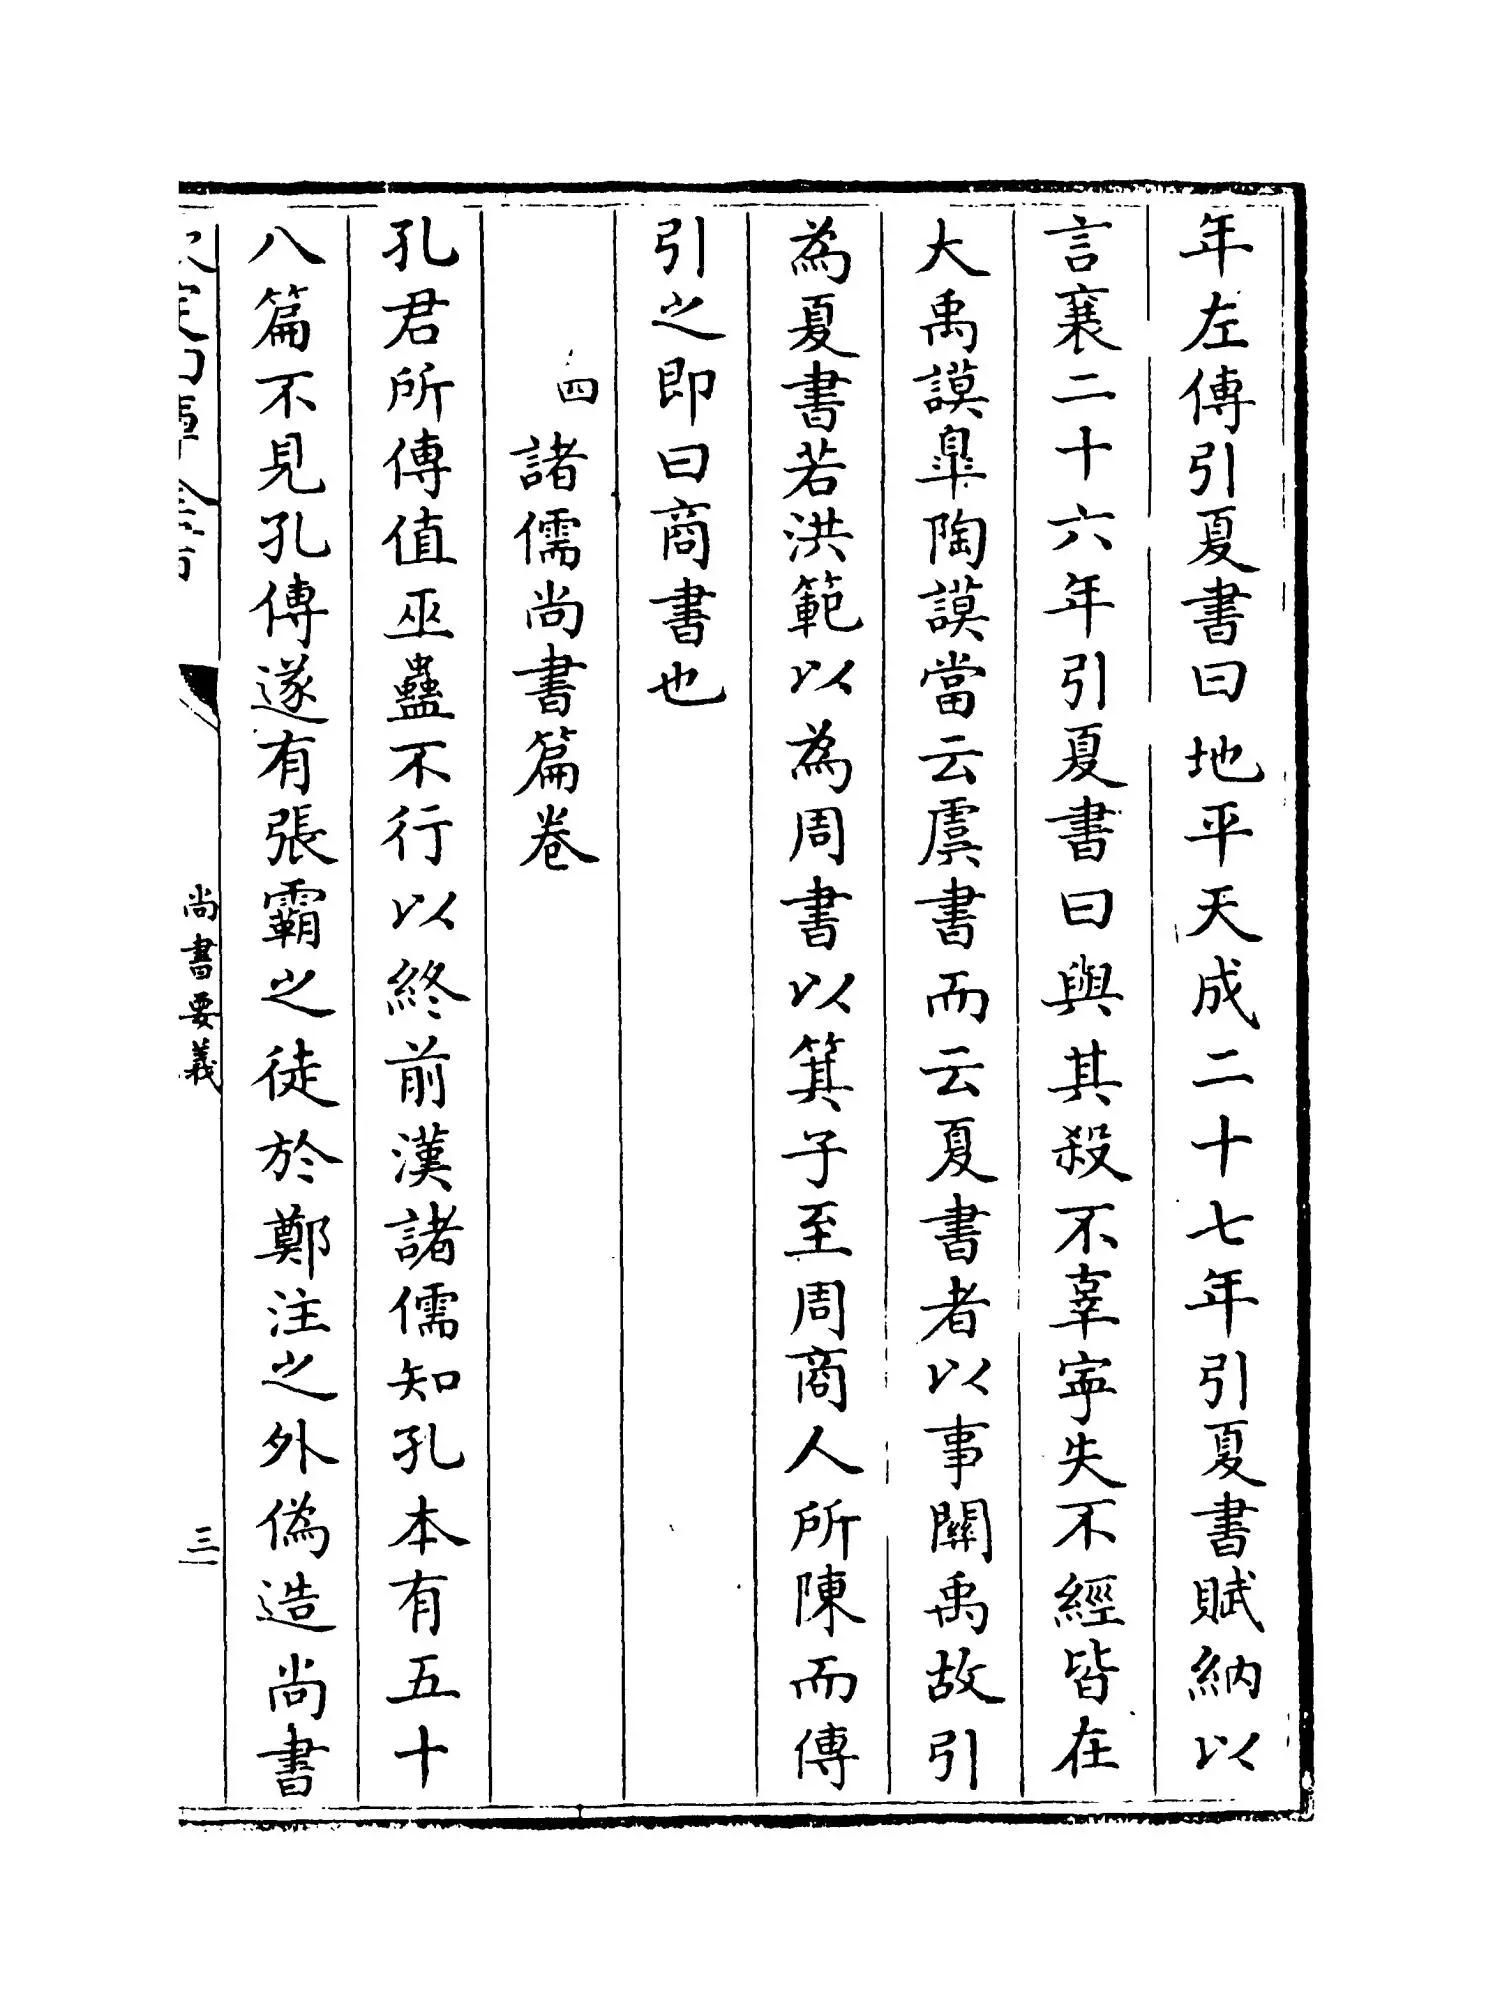 年左傳引夏書曰地平天成二十七年引夏書賦納以
言襄二十六年引夏書曰與其殺不辜寧失不經皆在
大禹謨臯陶謨當云虞書而云夏書者以事關禹故引
為夏書若洪範以為周書以箕子至周商人所陳而傳
引之即曰商書也
四 諸儒尚書篇卷
孔君所傳值巫蠱不行以終前漢諸儒知孔本有五十
八篇不見孔傳遂有張霸之徒於鄭注之外偽造尚書
尚書要義
三